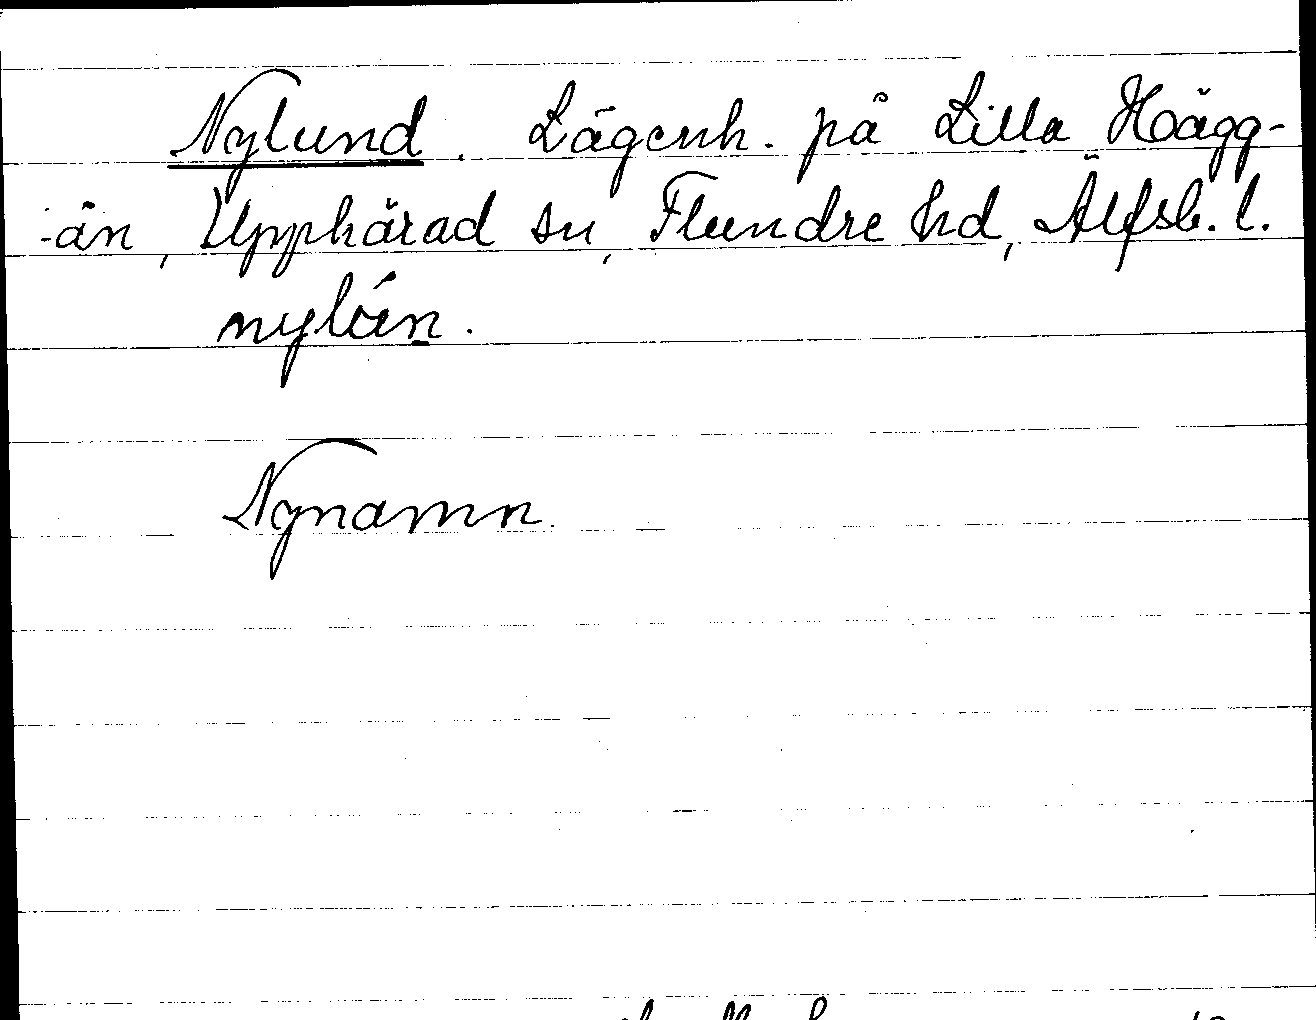 Nylund. Lägenh. på Lilla Hägg-
-ån, Upphärad sn, Flundre hd, Älfsb. l.
nylún.
Nynamn.